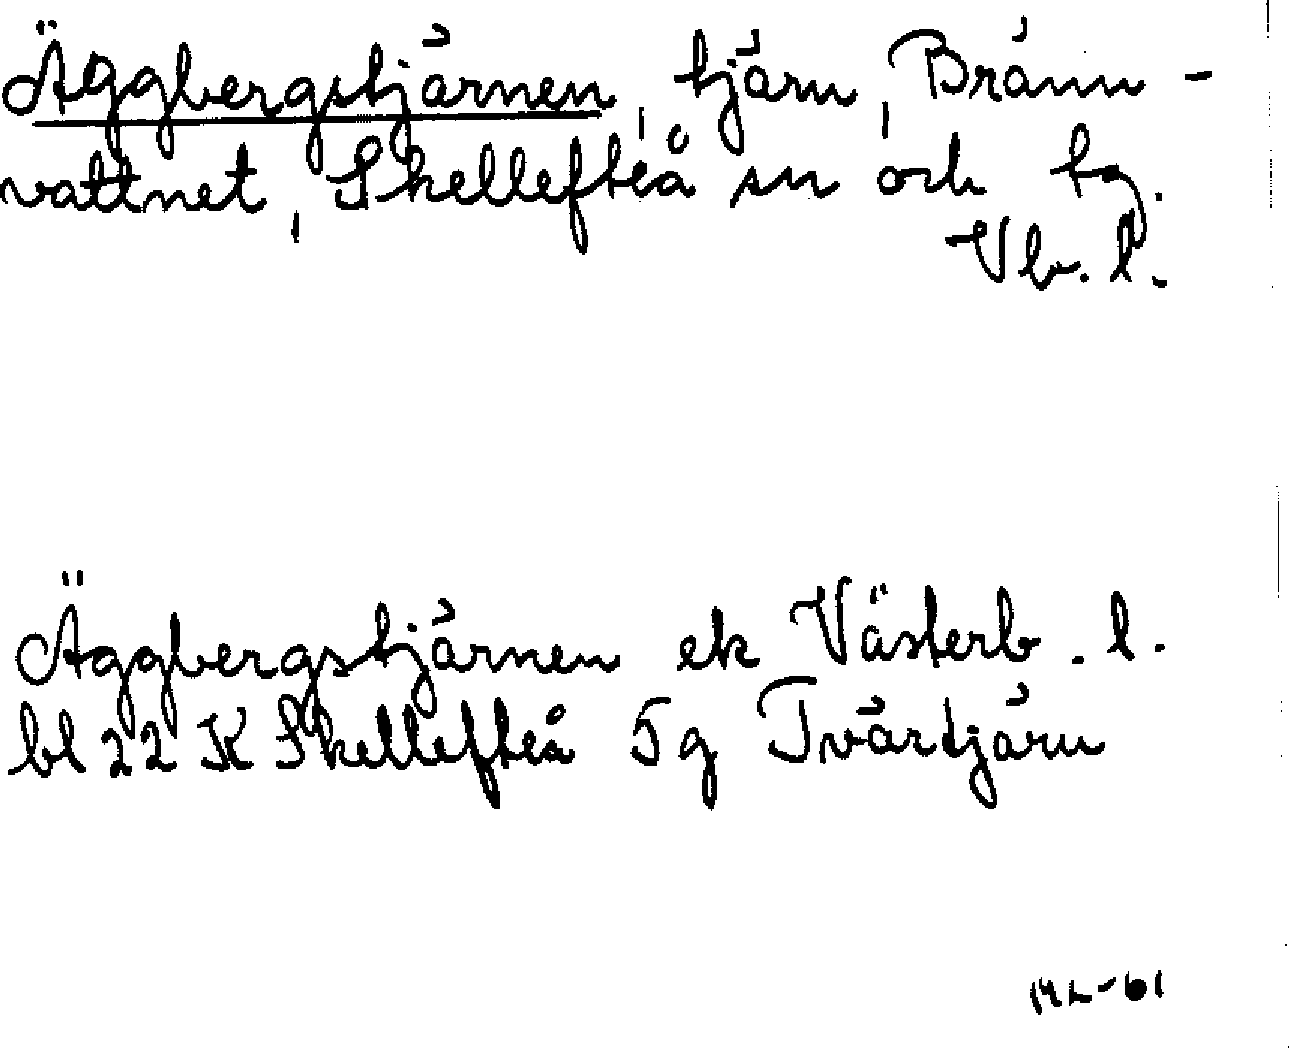 Äggbergstjärnen, tjärn, Bränn-
vattnet, Skellefteå sn och tg.
Vb. l.
Äggbergstjärnen ek Västerb. l.
bl 22 K Skellefteå 5 g Tvärtjärn
ML-61